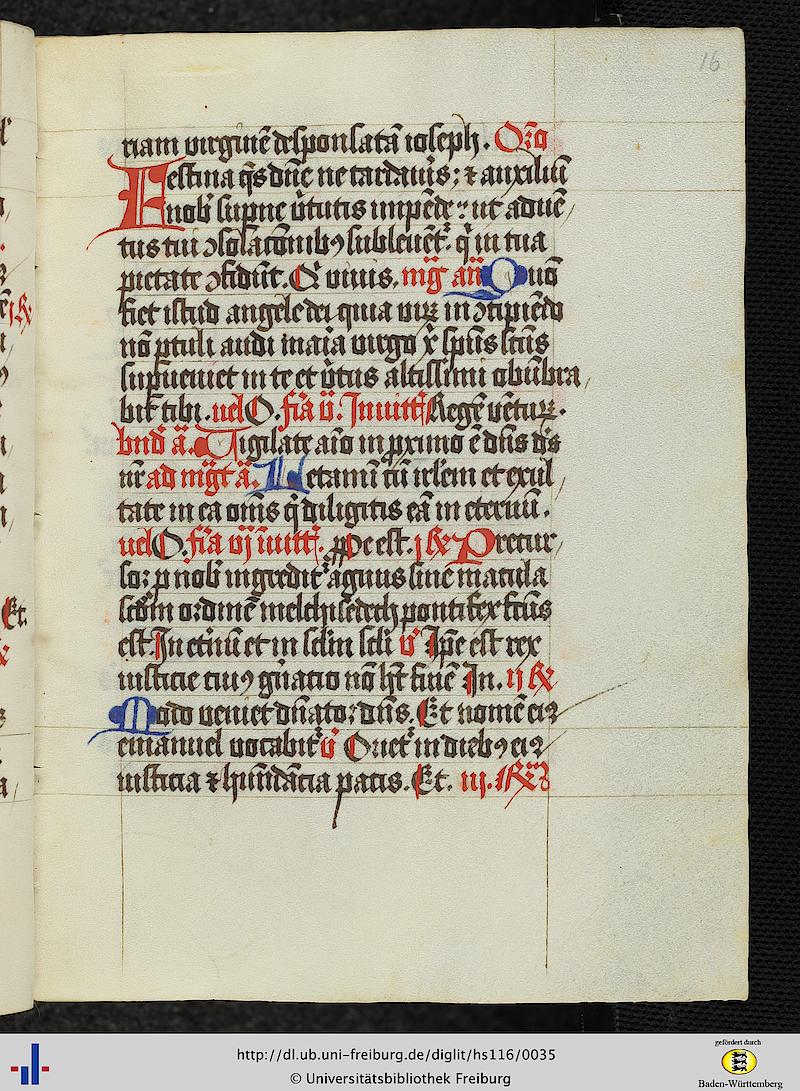 16
riam virginē desponsatā ioseph. Oꝛo
Festina qs dn̄e ne tardaueris: ⁊ auxiliū
nob supne v̓tutis impēde: ut aduē
tus tui ↄsolacōnibꝯ subleuēt᷑. qi in tua
pietate ↄfidūt. Q viuis. mg̅ an̄ Quō
fiet istud angele dei quia viꝝ in ↄcipiēdo
nō ꝑtuli audi maria virgo x̄ sp̄us sc̄us
supueniet in te et v̓tus altissimi obūbra
bit tibi. uel O. fr̄ia v̄. Inuitt̄ Regē vētuꝝ.
bnd̄ a. Vigilate aīo in ꝓximo ē dn̄s ds̄
nr̄ ad mg̅t a. Letamī cū irlem et exul
tate in ea om̄s qi diligitis eā in eternū.
uel O. fr̄ia vj īuitt̄. ꝓpe est. j ℞ Precur
soꝛ ꝓ nob ingredit᷑ agnus sine macula
scd̄m oꝛdinē melchisedech pontifex fc̄us
est. In et̓nū et in sc̄lm sc̄li ℣ Ip̄e est rex
iusticie cuiꝯ gn̓atio nō ht̄ finē In. ij ℞
Modo veniet dn̄atoꝛ dn̄s. Et nomē eiꝰ
emanuel vocabit᷑ ℣ Oriet᷑ in diebꝯ eiꝰ
iusticia ⁊ hūndācia pacis. Et. iij. ℞
Et.
http://dl.ub.uni-freiburg.de/diglit/hs116/0035
© Universitätsbibliothek Freiburg
gefördert durch
Baden-Württemberg